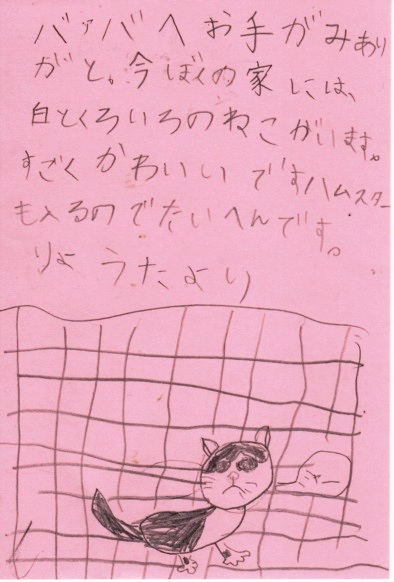 バァバへお手がみあり
がと。今ぼくの家には、
白とくろいろのねこがいます。
すごくかわいいですハムスター
も入るのでたいへんです。
りょうたより